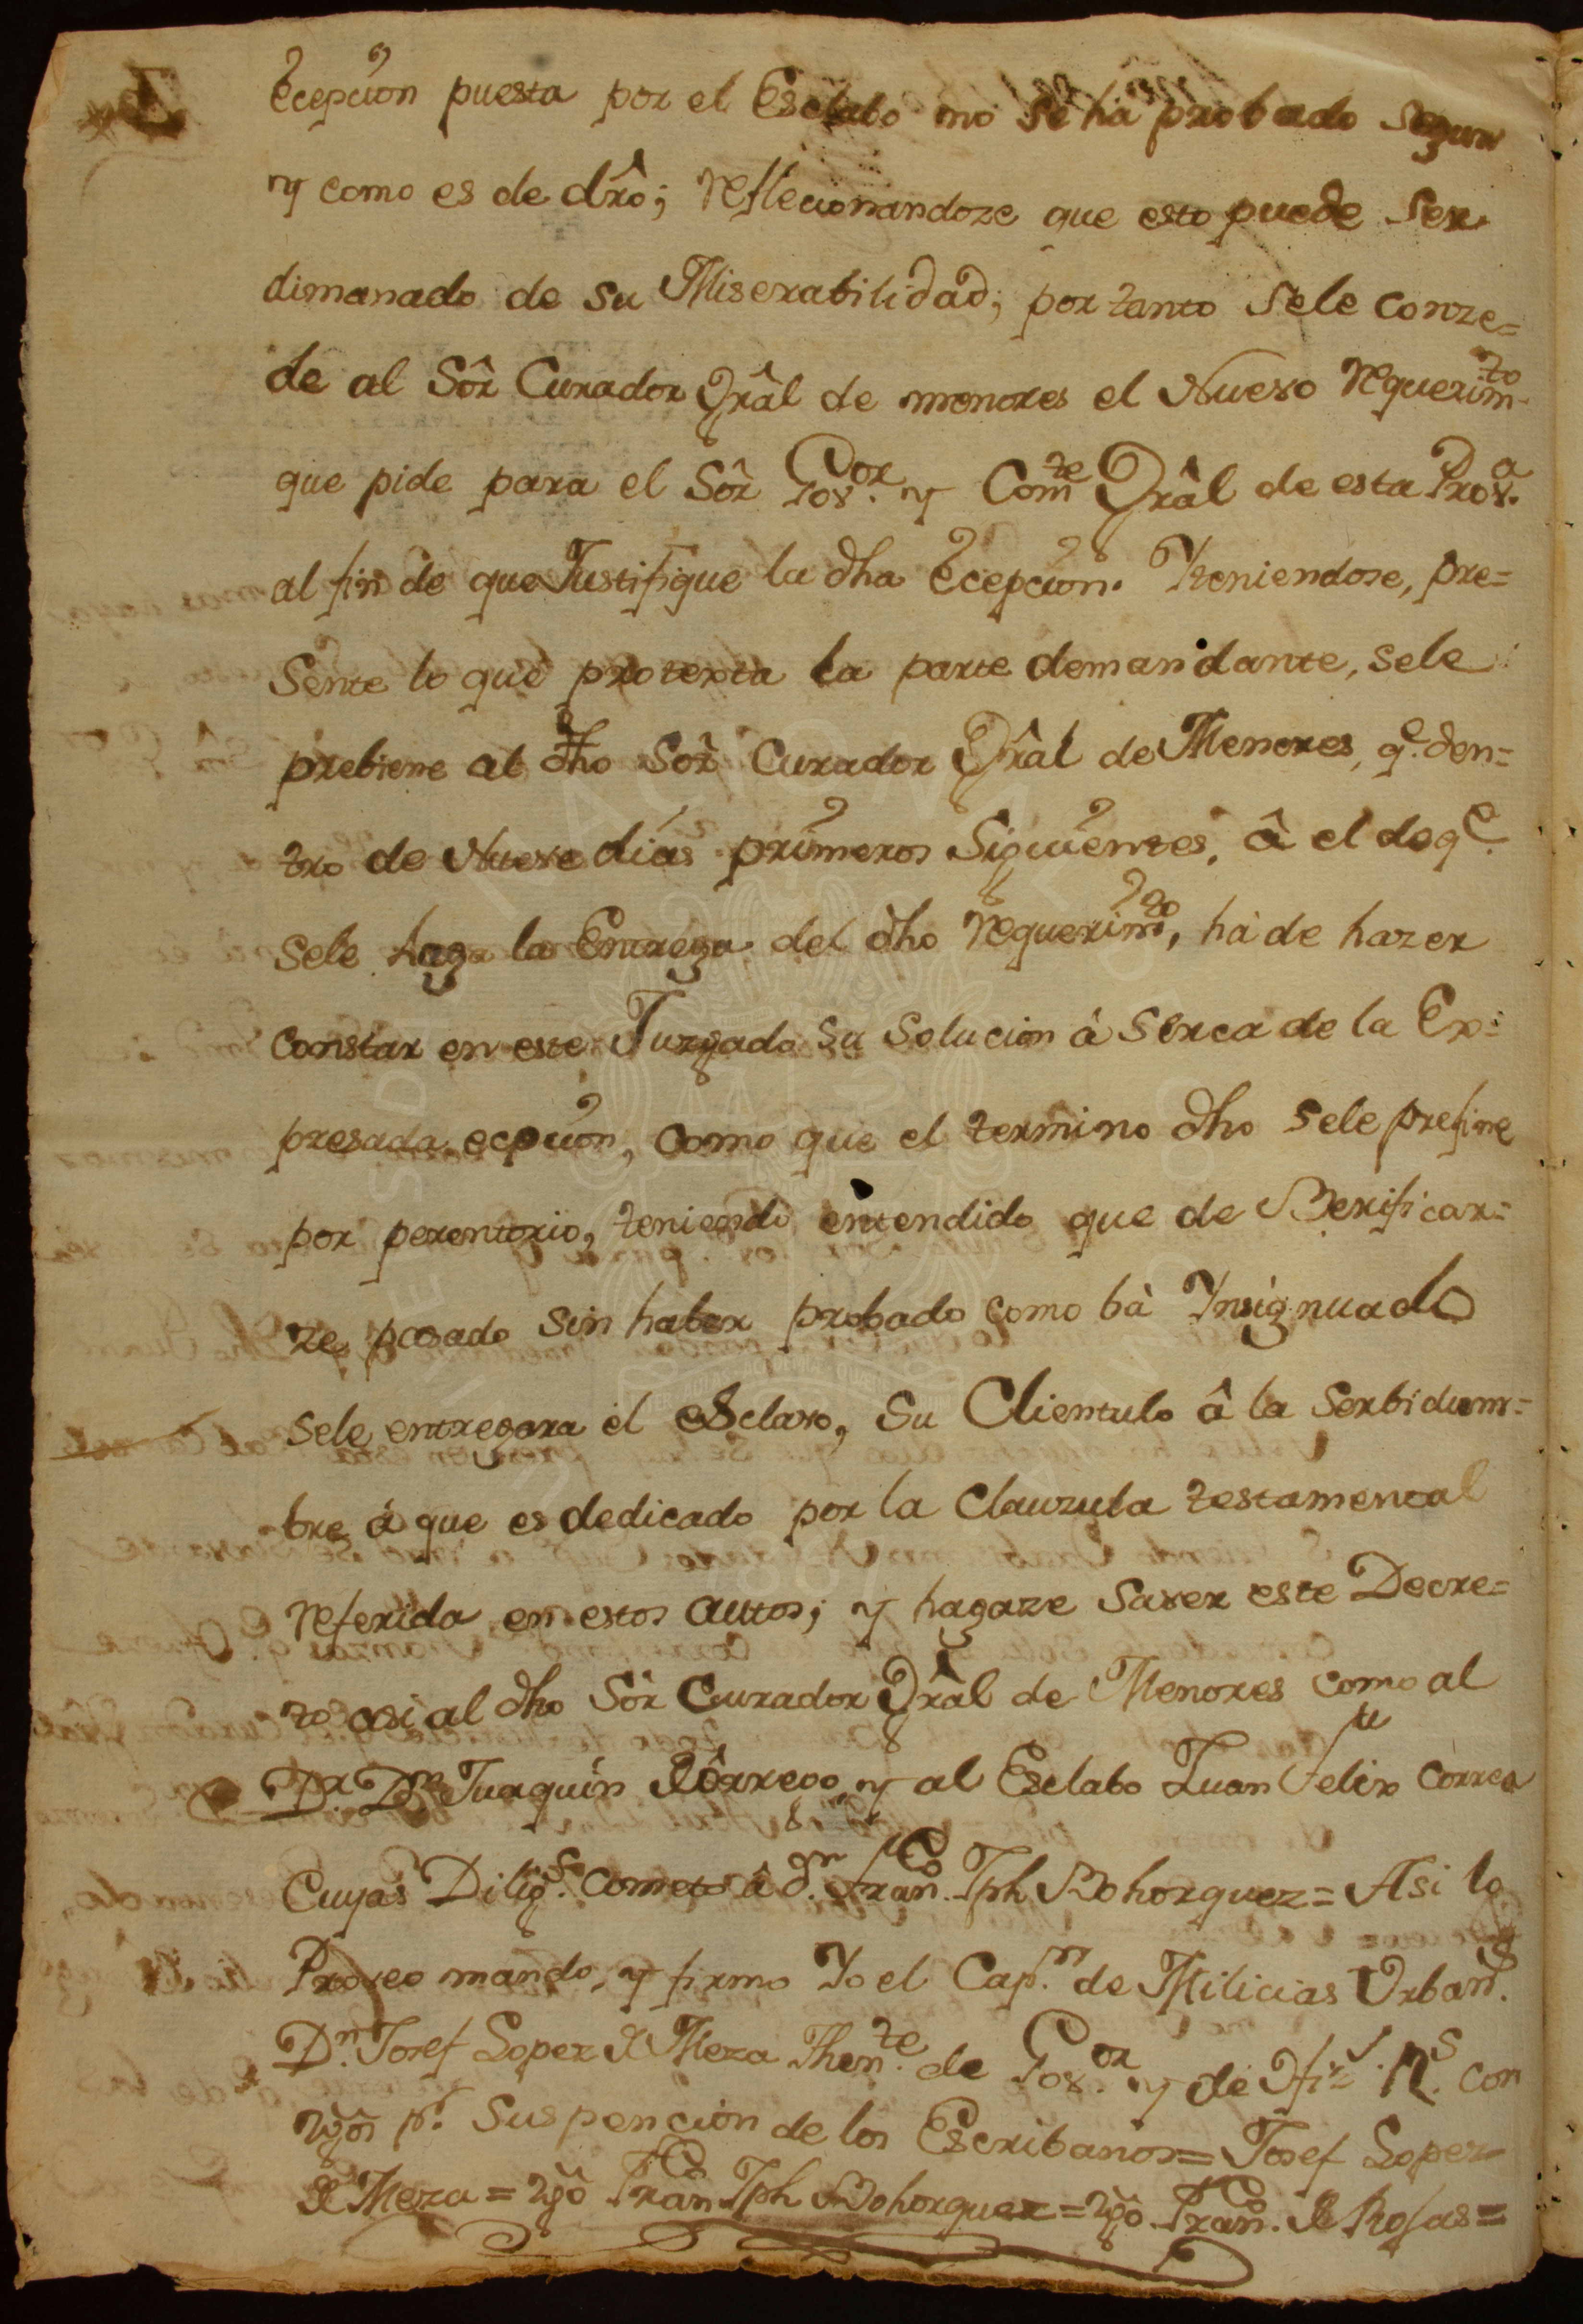 Ecepcion puesta por el Esclabo no se há probado segun
y como es de dró; Reflecionandoze que esto puede Ser
dimanado de su Miserabilidad; por tanto Sele conze=
de al Sôr Curador Grâl de menores el Nuevo Requerimto
que pide para el Sôr Govor. y Comte Grâl de esta Prova.
al fin de que Justifique la dha Ecepcion. Yteniendose, pre=
Sente lo que protexta la parte demandante, sele
prebiene al dho Sôr Curador Grâl de Menores, qe. den=
tro de Nueve días primeros Siguientes, â el de qe.
sele haga la Entrega del dho Requerimto, há de hazer
constar en este Juzgado su solucion á serca de la Ex=
presada ecpcion, como que el termino dho sele prefine
por perentorio, teniendo entendido que de Berificar=
ze pasado sin haber probado como bá Ynsignuado
sele entregara el esclavo, su Clientulo â la serbidum=
bre á que es dedicado por la Clauzula testamental
referida en estos autos; y hagaze saver este Decre=
to asi al dho Sôr Curador Grâl de Menores como al
Dr. Dn. Juaquin Bôrrego, y al Esclabo Juan Felix Correa
Cuyas Diligs. cometo â dn. Franco. Jph Bohorquez= Asi lo
Proveo mando, y firmo Yo el Capn. de Milicias Urbans.
Dn. Josef Lopez de Meza Thente. de Govor. y de Ofis. Rs. con
tgos pr. Suspencion de los Escribanos= Josef Lopez
de Meza= tgo Franco Jph Bohorquez= tgo Franco. de Rojas=